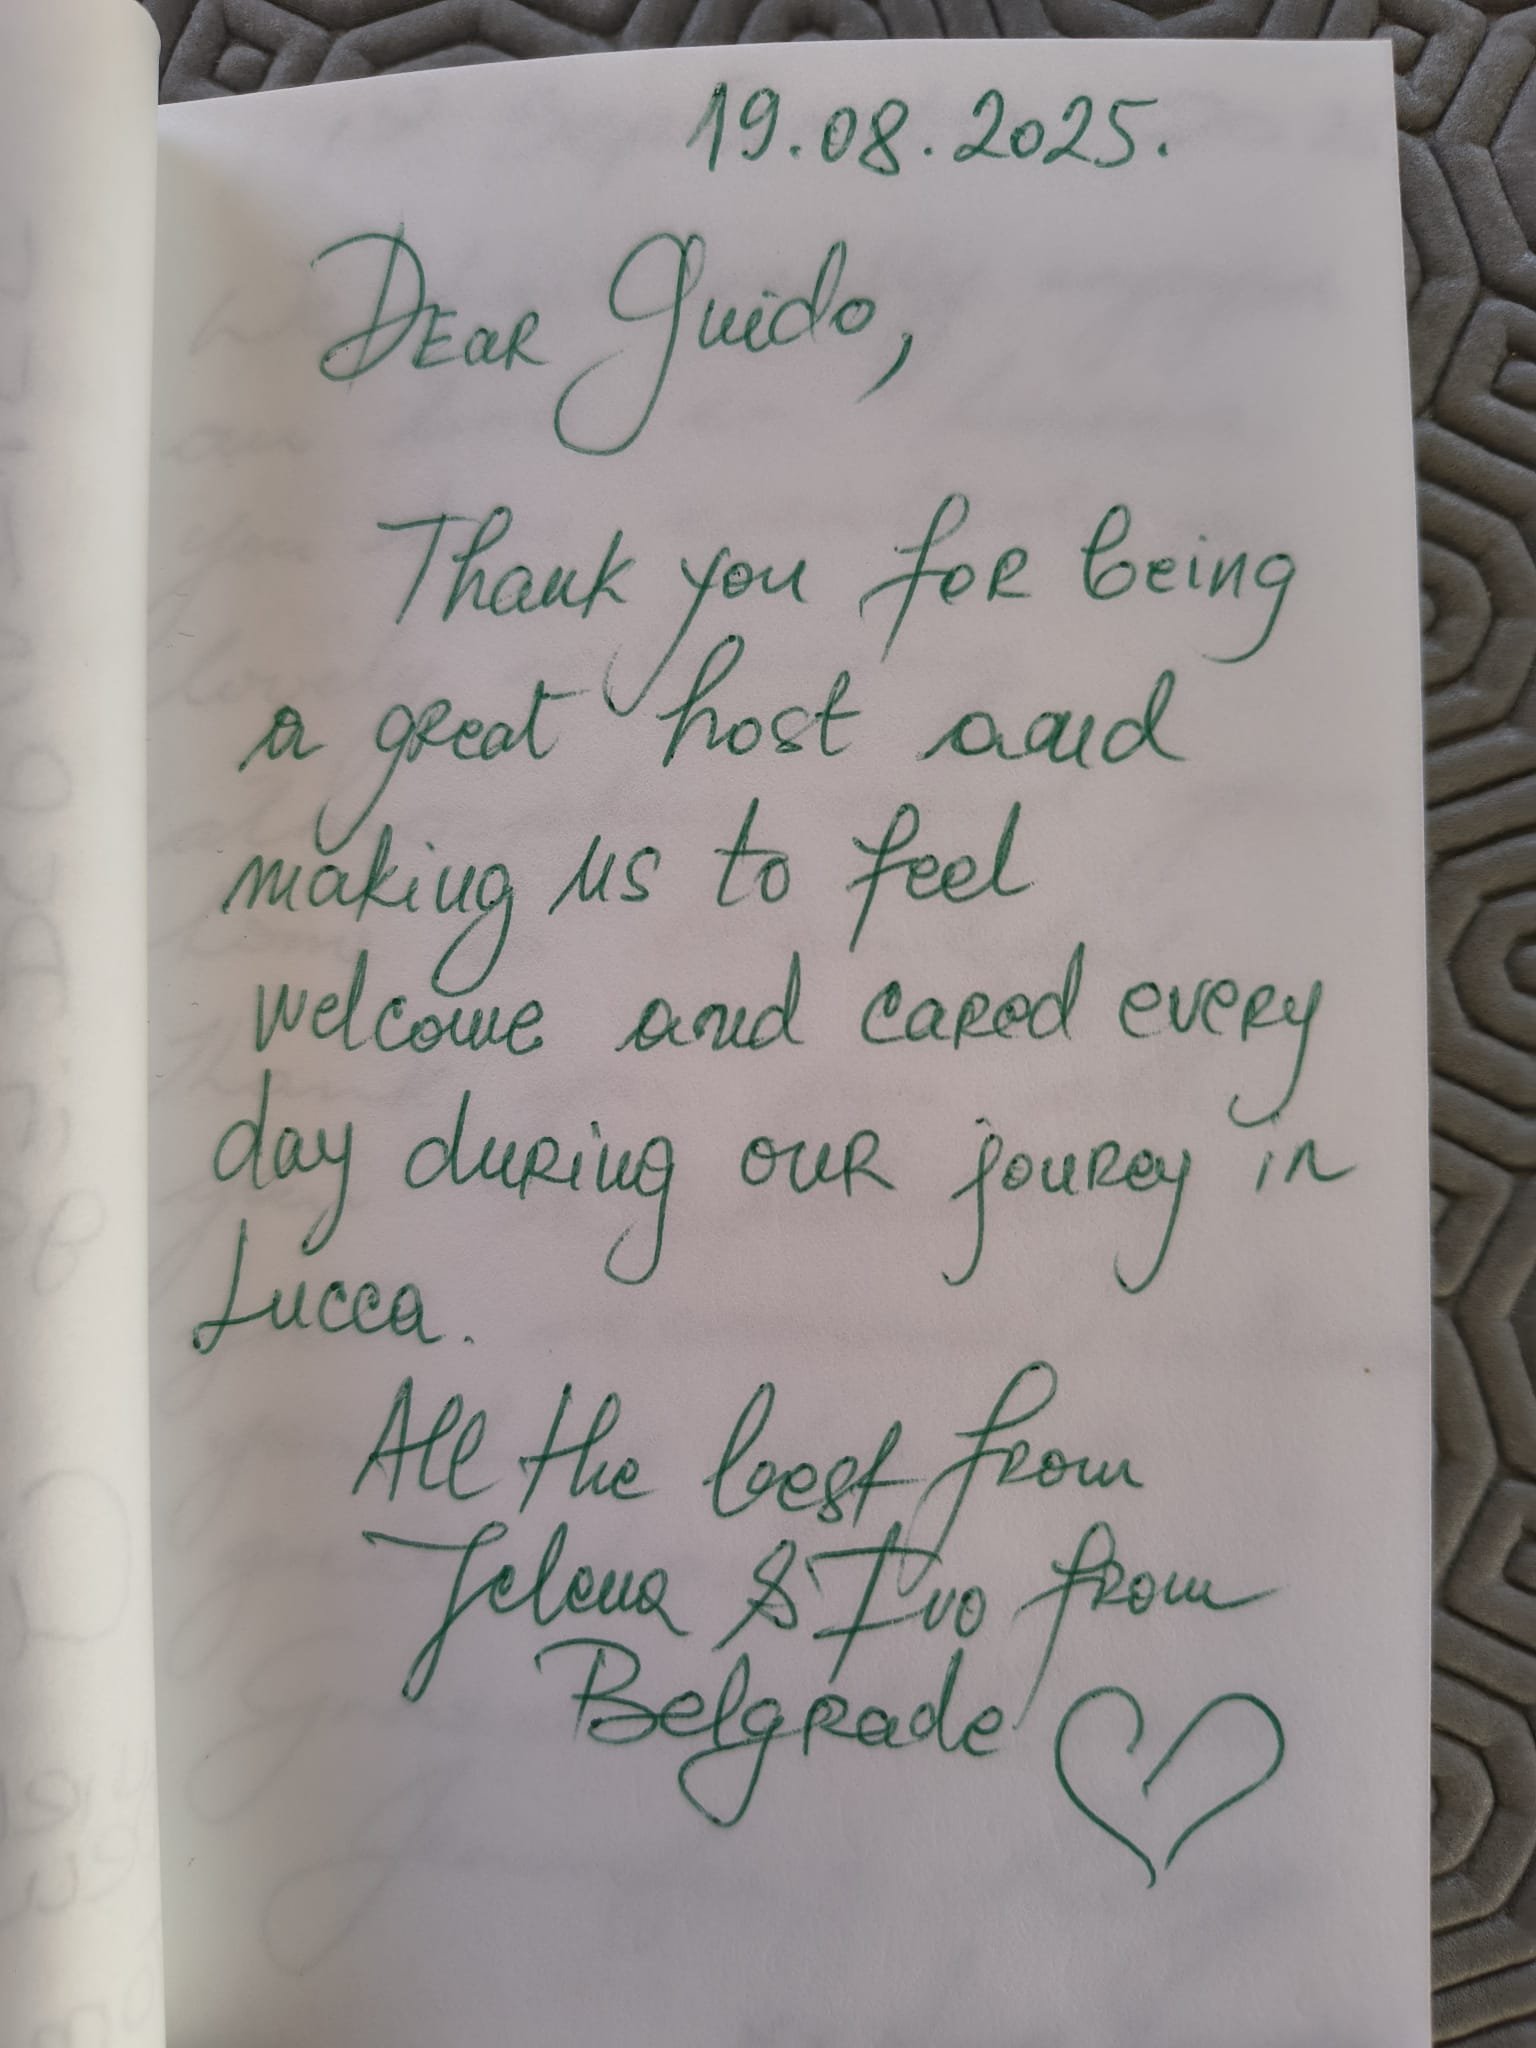 19.08.2025.
Dear Guido,
Thank you for being
a great host and
making us to feel
welcome and cared every
day during our jourey in
Lucca.
All the best from
Jelena & Ivo from
Belgrade